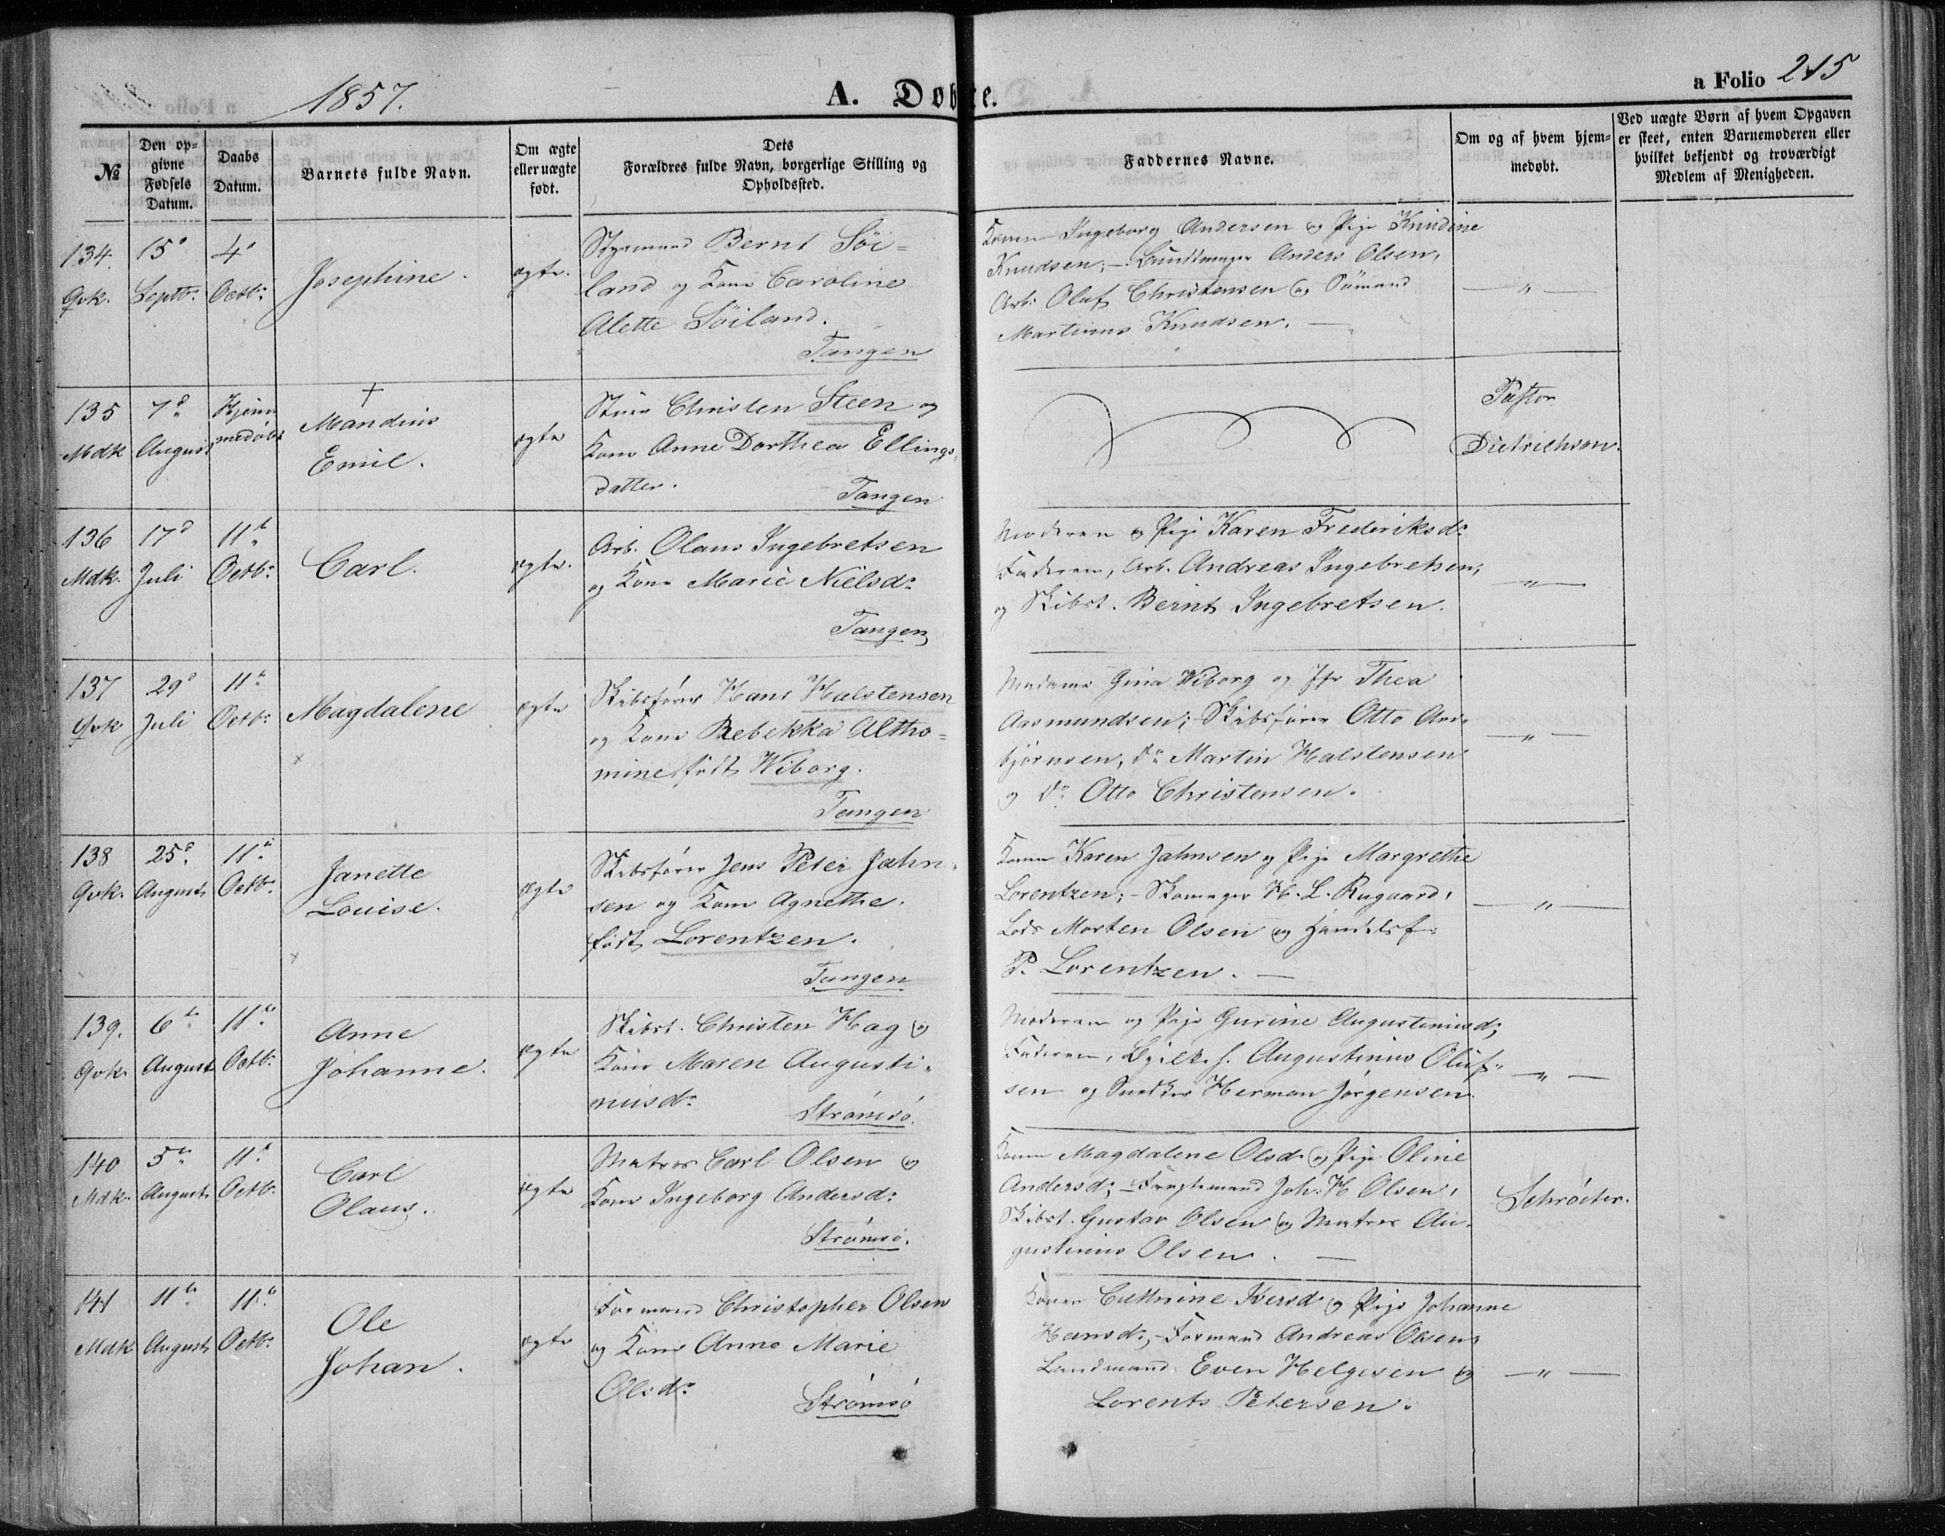 1857.
A. Døbte.
a Folio 215
№
Den opgivne Fødsels Datum.
Daabs Datum.
Barnets fulde Navn.
Om ægte eller uægte født.
Dets Forældres fulde Navn, borgerlige Stilling og Opholdssted.
Faddernes Navne.
Om og af hvem hjemmedøbt.
Ved uægte Børn af hvem Opgaven er skeet, enten Barnemoderen eller hvilket bekjendt og troværdigt Medlem af Menigheden.
134. Qvk.
15d Septbr
4d Octbr
Josephine.
ægte.
Styrmand Bernt Söi=
land og Kone Caroline
Alette Söiland.
Tangen
Konen Ingeborg Andersen og Pige Knudine
Knudsen; - Anders Olsen,
Arb. Oluf Christensen og Sömand
Martinus Knudsen. —
— " —
135 Mdk
7d August
Hjemmedøbt
+
Mandius
Emil.
ægte
Christen Steen og
Kone Anne Dorthea Ellings-
datter.
Tangen
Pastor
Dietrichson.
136 Mdk.
17d Juli
11te Octbr
Carl.
ægte.
Arb. Olaus Ingebretsen
og Kone Marie Nielsdr
Tangen
Moderen og Pige Karen Frederiksdr
Faderen, Arb. Andreas Ingebretsen,
og Skibst. Bernt Ingebretsen.
— " —
137 Qvk
29d Juli
11te Octbr
Magdalene
ægte
Skibsfører Hans Halstensen
og Kone Rebekka Altho=
mine født Wiborg.
Tangen
Madame Gina Wiborg og Jfr Thea
Aasmundsen; Skibsfører Otto An-
bjørnsen, do Martin Halstensen
og do Otto Christensen.
— " —
138 Qvk.
25d August
11te Octbr
Janette
Louise.
ægte
Skibsfører Jens Peter Jahn-
sen og Kone Agnethe,
født Lorentzen.
Tangen
Konen Karen Jahnsen og Pige Margrethe
Lorentzen; - Skomager H. L. Rugaard,
Lods Morten Olsen og Handelsf.
P. Lorentzen. —
— " —
139. Qvk.
6te August
11te Octbr
Anne
Johanne.
ægte
Skibst. Christen Hag og
Kone Maren Augusti-
nusdr
Strömsö.
Moderen og Pige Gurine Augustinusd;
Faderen, Augustinus Oluf-
sen og Snedker Herman Jørgensen
— " —
140 Mdk.
5te August
11te Octbr
Carl
Olaus.
ægte
Matros Carl Olsen og
Kone Ingeborg Andersdr
Strömsö.
Konen Magdalene Olsd. og Pige Oline
Andersd; - Fragtemand Joh. H Olsen,
Skibst. Gustav Olsen og Matros Au-
gustinus Olsen. —
Schröeter.
141 Mdk
11te August
11te Octbr
Ole
Johan.
ægte
Formand Christopher Olsen
og Kone Anne Marie
Olsdr
Strömsö
Konen Cathrine Iversd og Pige Johanne
Hansd; - Formand Andreas Olsen,
Landmand Even Helgesen og
Lorents Petersen.
— " —